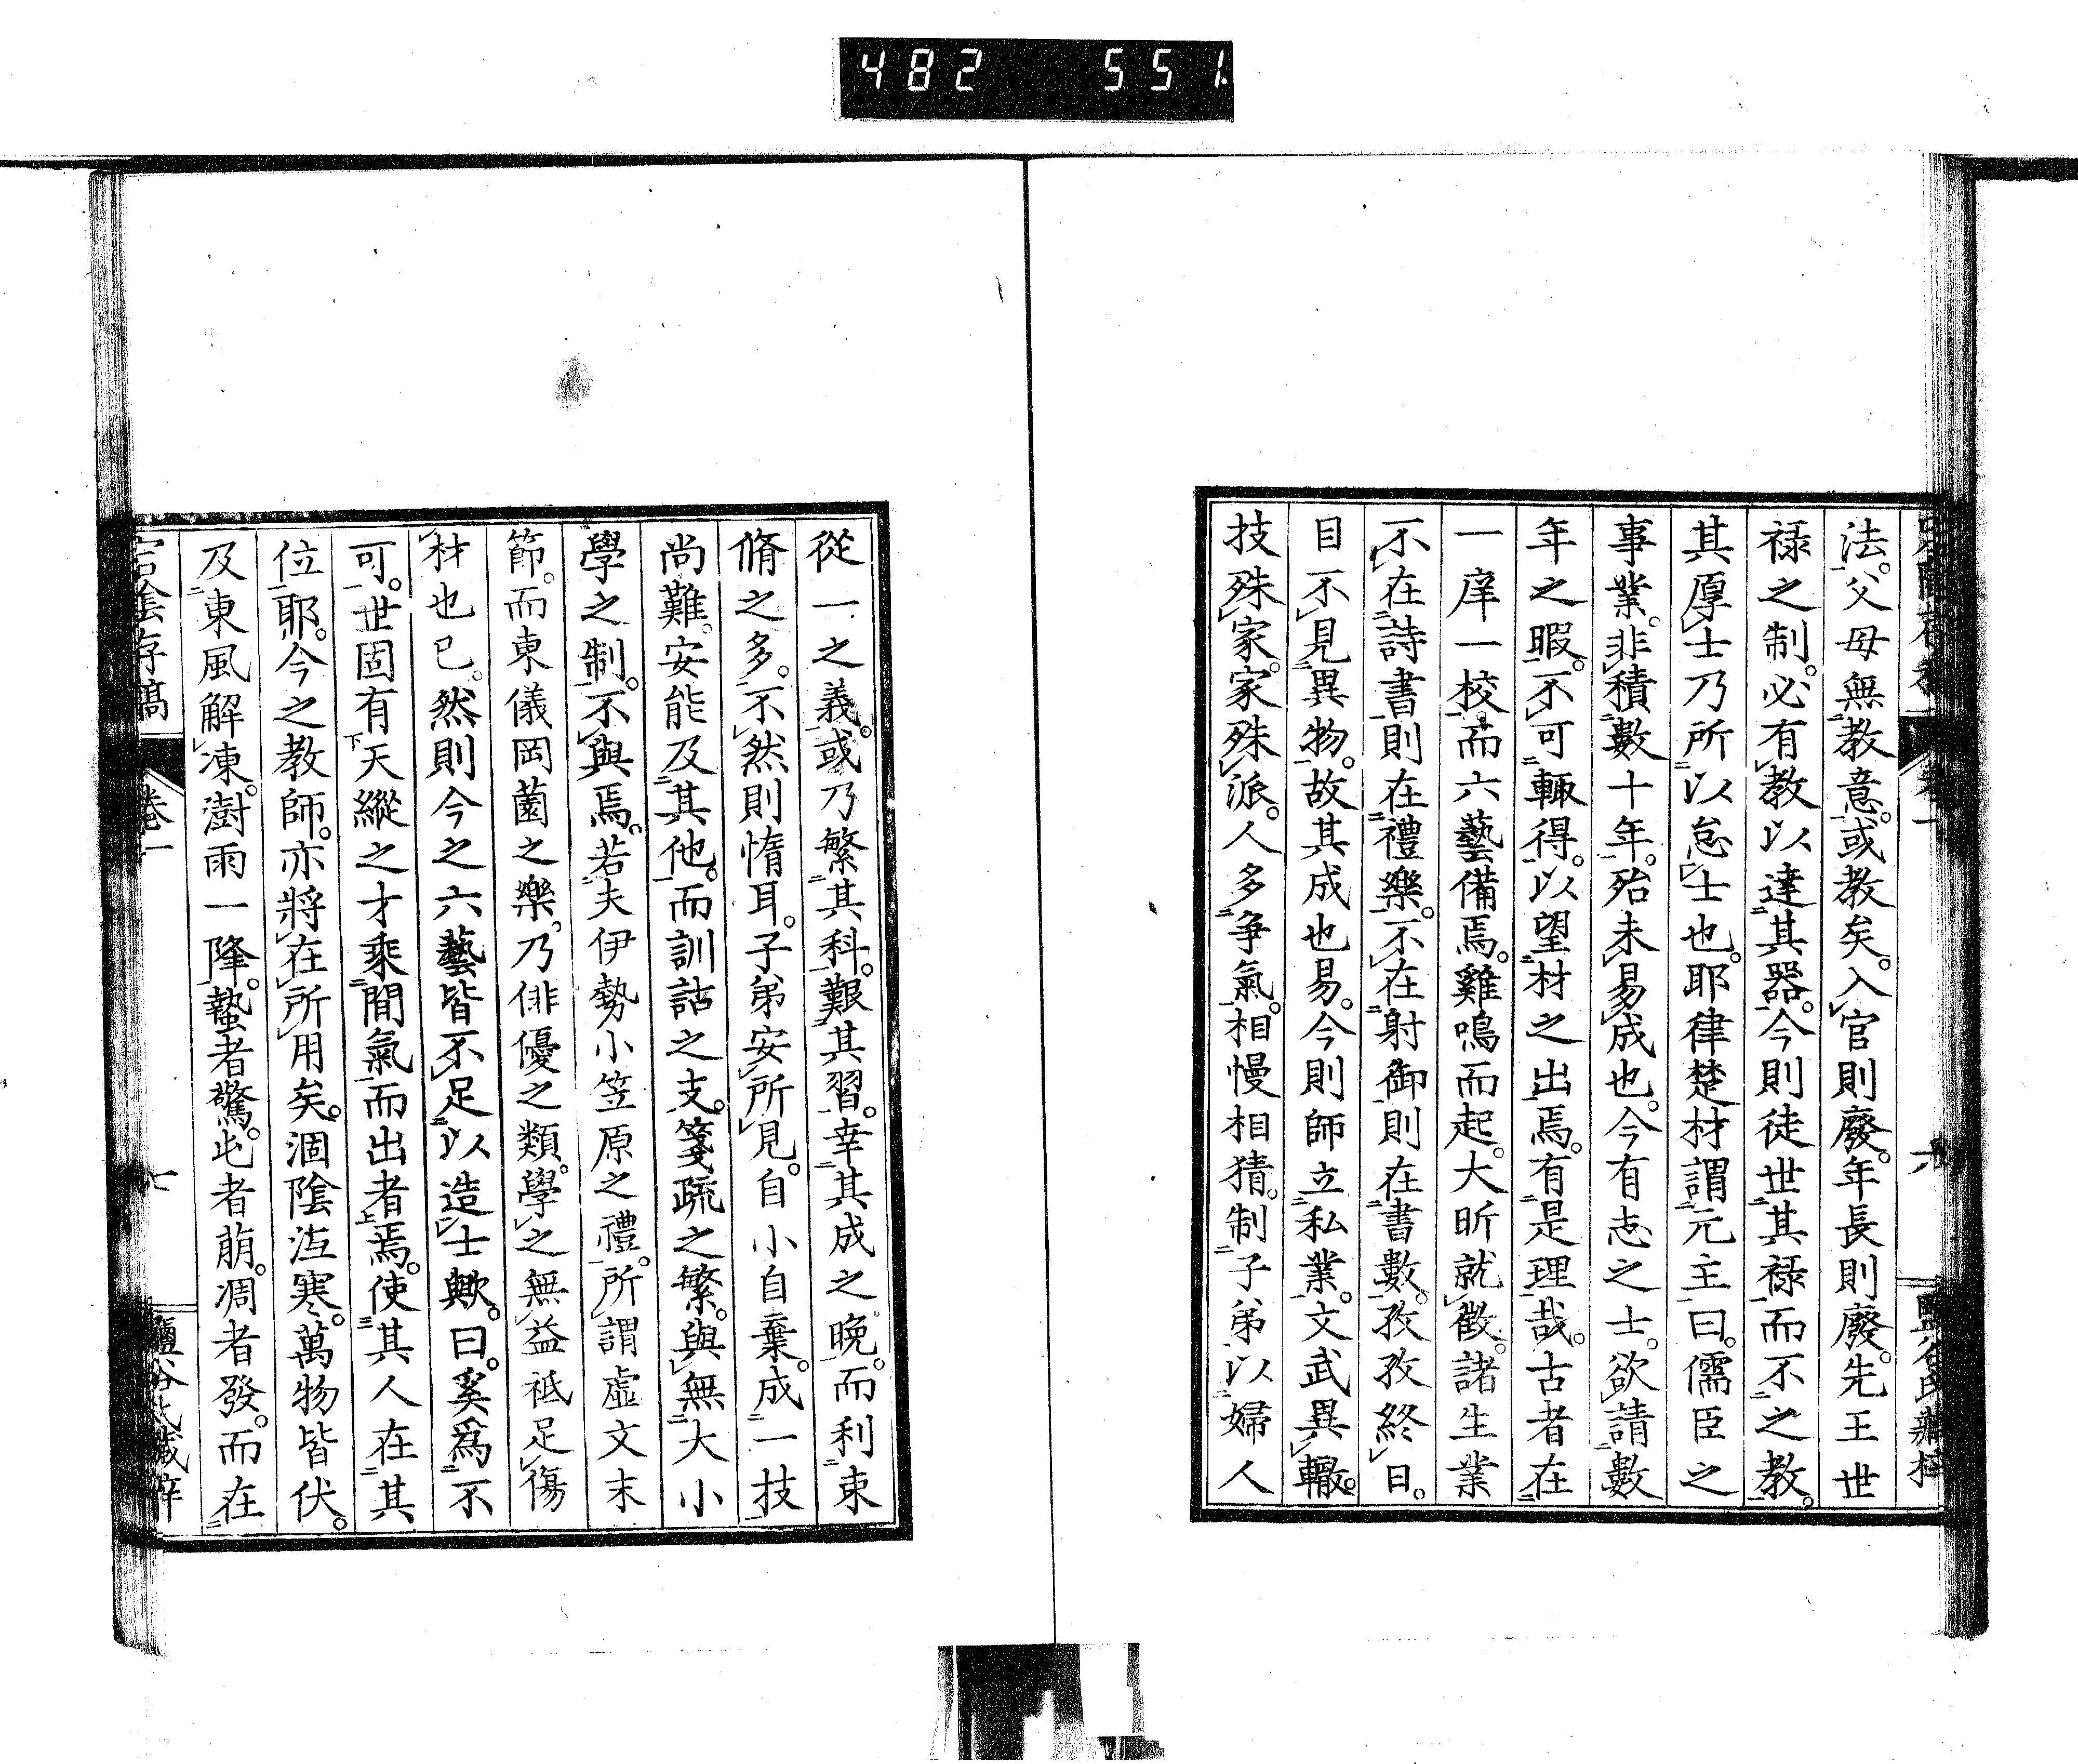 482 551
法。父母無教意。或教矣。入官則廢。年長則廢。先王世
祿之制。必有教以達其器。今則徒世其祿。而不之教。
其厚士乃所以怠士也。耶律楚材謂元主曰。儒臣之
事業。非積數十年。殆未易成也。今有志之士。欲請數
年之暇。不可輙得。以望材之出焉。有是理哉。古者在
一庠一校。而六藝備焉。雞鳴而起。大昕就徵。諸生業
不在詩書則在禮樂。不在射御則在書數。孜孜終日。
目不見異物。故其成也易。今則師立私業。文武異轍。
技殊家。家殊派。人多爭氣。相慢相猜。制子弟以婦人
從一之義。或乃繁其科。艱其習。幸其成之晚。而利束
脩之多。不然則惰耳。子弟安所見。自小自棄。成一技
尚難。安能及其他。而訓詁之支。箋疏之繁。與無大小
學之制。不與焉。若夫伊勢小笠原之禮。所謂虛文末
節。而東儀岡薗之樂。乃俳優之類。學之無益祇足傷
材也已。然則今之六藝皆不足以造士歟。曰。奚爲不
可。世固有天縱之才乘間氣而出者焉。使其人在其
位耶。今之教師。亦將在所用矣。涸陰沍寒。萬物皆伏。
及東風解凍。澍雨一降。蟄者驚。屯者萠。凋者發。而在
宕陰存稿 卷一 七 鹽谷氏藏梓